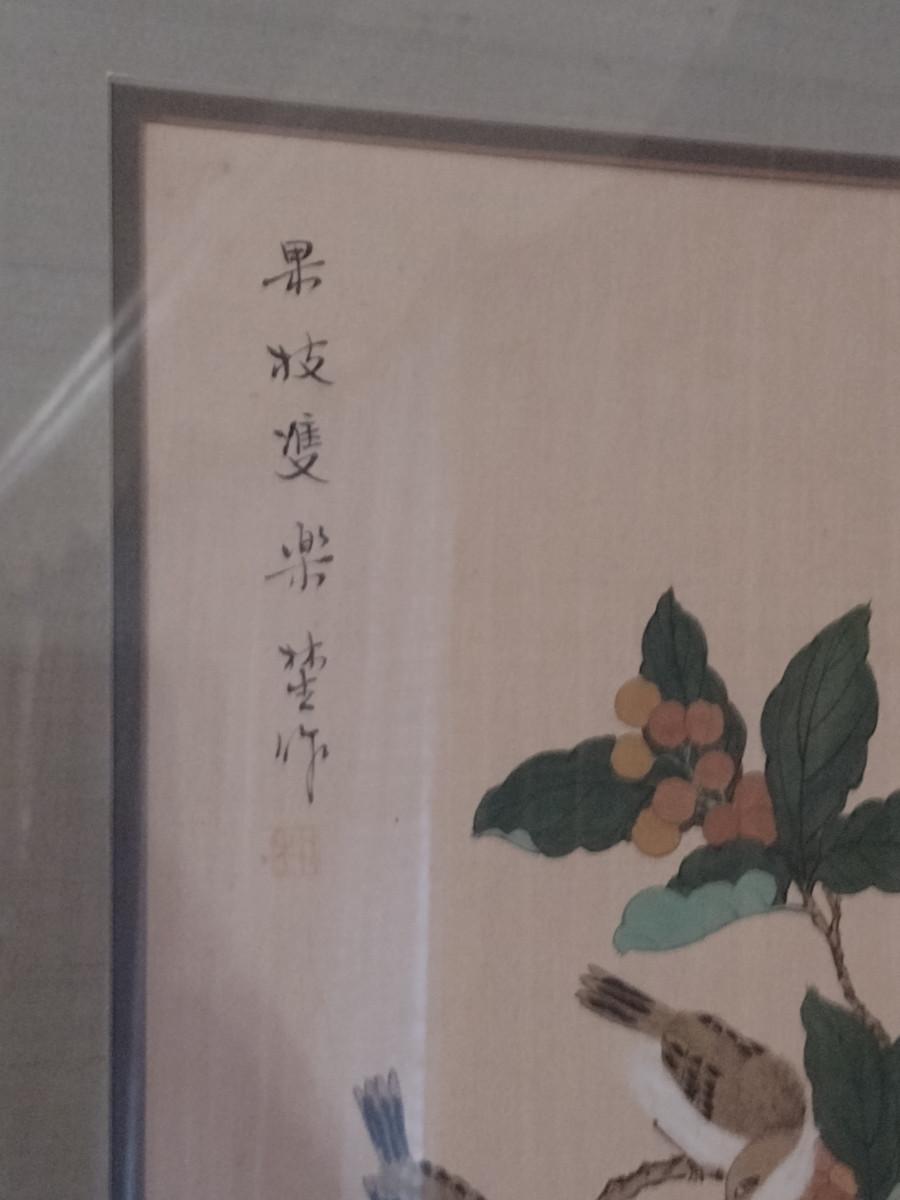 果枝雙樂 楚作